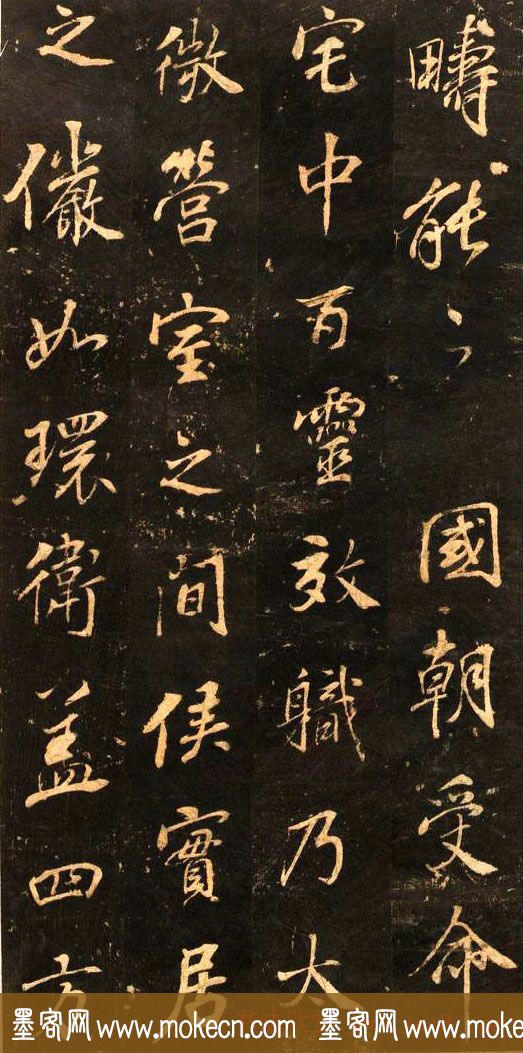 疇能之 國朝受命
宅中百靈效職乃太
微營室之間侯實居
之儼如環衛蓋四方
墨客网 www.mokecn.com 墨客网 www.mokecn.com